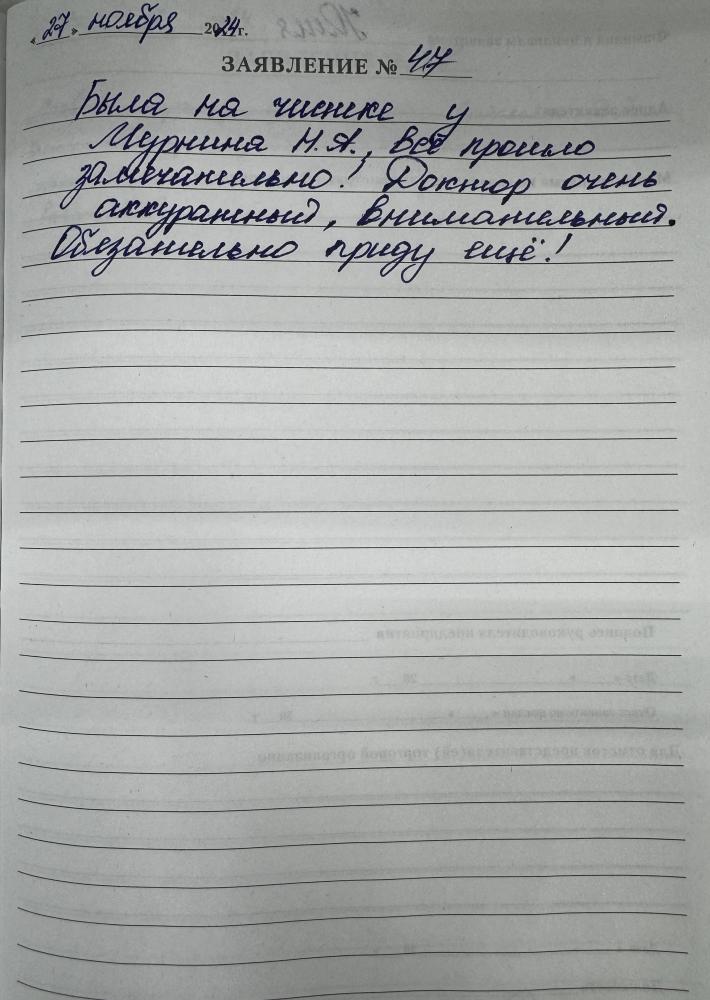 «27» ноября 2024г.
ЗАЯВЛЕНИЕ № 47
Была на чистке у
Мурнина Н.А., всё прошло
замечательно! Доктор очень
аккуратный, внимательный.
Обязательно приду ещё!